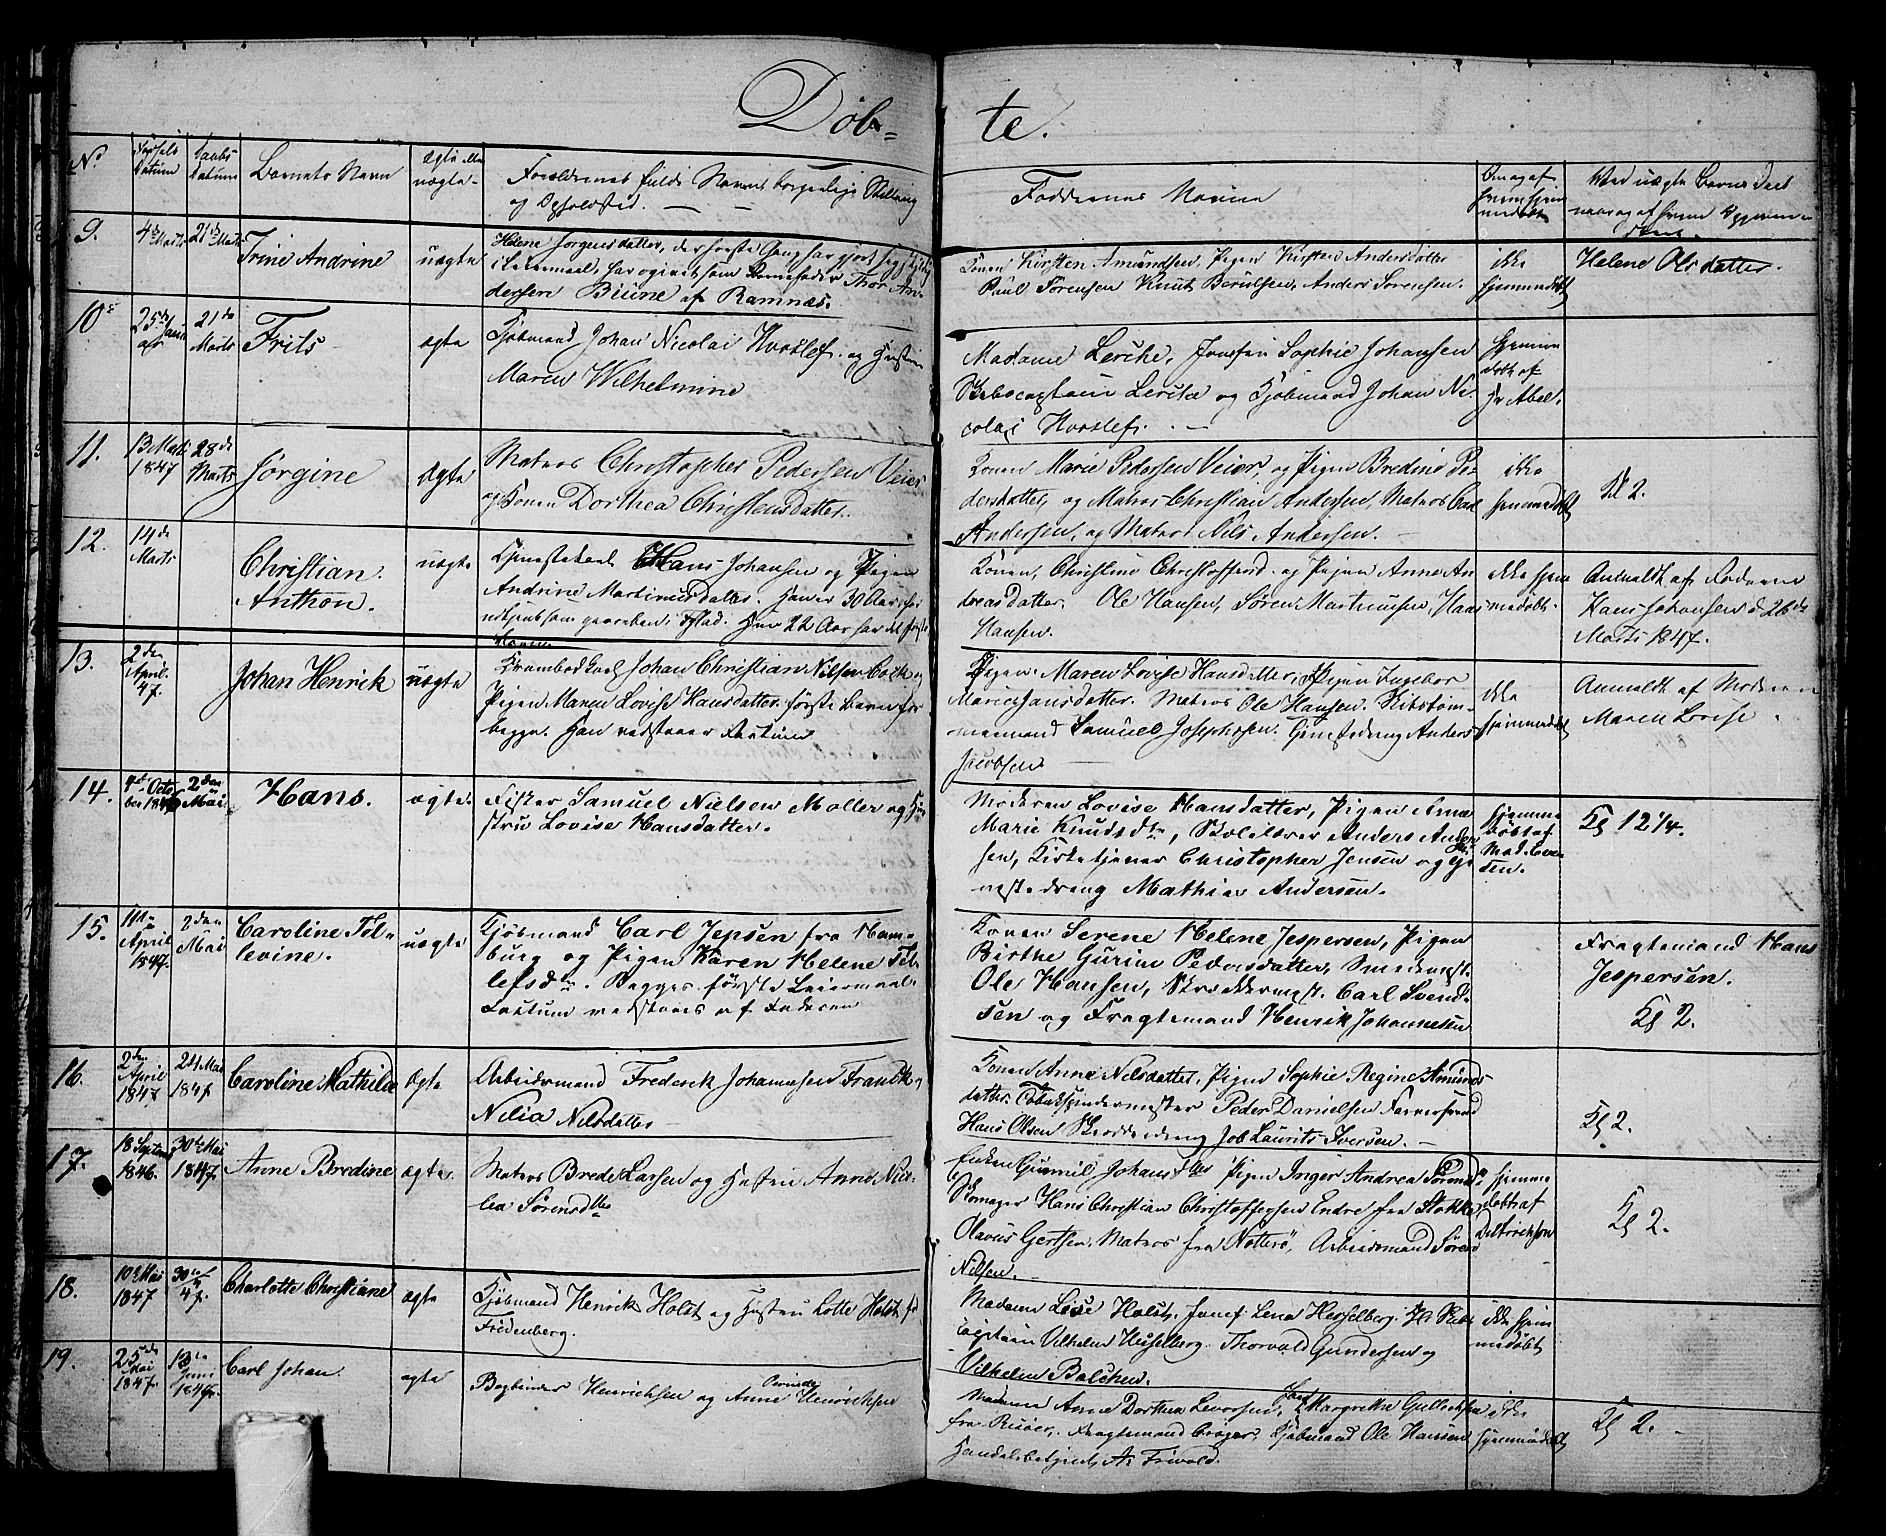 Døb-
te.
No
Fødsels Datum
Daabs Datum
Barnets Navn
Ægte eller uægte
Forældrenes fulde Navne borgerlige Stilling
og Opholdsted.
Faddernes Navne
Om og af hvem hjemmedøbt
Ved uægte Børns Daab
9.
4de Marts
21de Marts
Trine Andrine
uægte
Helene Jørgensdatter, der første Gang har gjort sig skyldig
i Leiermaal, har opgivet som Barnefader Thor An-
dersen Biune af Ramnæs.
Konen Kirsten Amundsen, Pigen Kirsten Andersdatter
Paul Sørensen Knut Berulsen, Anders Sørensen.
ikke
hjemmedøbt
Helene Olsdatter.
10
25de
21de
Marts
Frits
ægte
Kjøbmand Johan Nicolai Horslef og Hustru
Maren Wilhelmine
Madame Lerche, Jomfru Sophie Johansen
Skibscaptain Lerche og Kjøbmand Johan Ni-
colai Horslef.
hjemme
døbt af
Hr Abel.
11.
13 Marts
1847
28de
Marts
Jørgine
Ægte
Matros Christopher Pedersen Veier
og Konen Dorthea Christensdatter.
Konen Marie Pedersen Veier, og Pigen Bredine Pe-
dersdatter, og Matros Christian Andersen, Matros Carl
Andersen, og Matros Nils Andersen.
ikke
hjemmedøbt
Kl 2.
12.
14de
Marts
Christian
Anthon.
uægte
Tjenestekarl Hans Johansen og Pigen
Andrine Martinusdatter. Han er 30 Aar,
Hun 22 Aar har det første
Konen, Christine Christoffersd. og Pigen Anne An-
dreasdatter. Ole Hansen, Søren Martinusen, Hans
Hansen.
ikke hjem
medøbt.
Anmeldt af Faderen
Hans Johansen d. 26de
Marts 1847.
13.
2den
April.
47.
Johan Henrik
uægte
Krambodkarl Johan Christian Nilsen Back og
Pigen Maren Lovise Hansdatter. første Barn for
begge. Han vedstaaer Factum
Pigen. Maren Lovise Hansdatter, Pigen Ingebor
Marie Hansdatter. Matros Ole Hansen. Skibstøm-
mermand Samuel Josephsen. Tjenestedreng Anders
Jacobsen
ikke
hjemmedøbt
Anmeldt af Moderen
Maren Lovise.
14.
4de Octo
ber 1846
2den
Mai
Hans.
ægte.
Fisker Samuel Nielsen Møller og Hu-
stru Lovise Hansdatter.
Moderen Lovise Hansdatter, Pigen Anne
Marie Knudsdtr, Skolelærer Anders Ander
sen, Kirketjener Christopher Jensen og Tje
nestedreng Mathias Andersen.
hjemme
døbt af
Mad. Loren
tzen.
Kl 12 1/4.
15.
11te
April
1847.
2den
Mai
Caroline Tol-
levine.
uægte
Kjøbmand Carl Jepsen fra Ham-
burg og Pigen Karen Helene Tol-
lefsdtr. Begges første Leiermaal.
Factum vedstaaes af Faderen
Konen Serene Helene Jespersen, Pigen
Birthe Gurine Pedersdatter, Smedemest.
Ole Hansen, Skræddermest. Carl Svend-
sen og Fragtemand Henrik Johannesen
Fragtemand Hans
Jespersen.
Kl 2.
16.
2den
April
1847
24 Mai
1847
Caroline Mathilde
Ægte
Arbeidsmand Frederik Johannesen Frandk og
Nilia Nilsdatter
Konen Anne Nilsdatter, Pigen Sophie Regine Amunds-
datter. Tobakspindermester Peder Danielsen Farversvend
Hans Olsen Skoddredreng Job Laurits Iversen.
Kl 2.
17.
18 Septem
1846.
30te Mai
1847.
Anne Bredine
ægte.
Matros Brede Larsen og Hustru Anne Nico-
lea Sørensdtter
Enken Gunnil Johansdtter Pigen Inger Andrea Sørensd.
Skomager Hans Christian Christoffersen Endre fra Stokke,
Olavus Gertsen, Matros fra Nøtterø, Arbeidsmand Søren
Nilsen.
hjemme
døbt af
Kl 2.
18.
10 Mai
1847
30te
47.
Charlotte Christiane
ægte
Kjøbmand Henrik Holst og Hustru Lotte Holst f
Fredenberg.
Madame Lise Holst, Jomf. Lena Hesselberg. Hr Skibs
Captain Vilhelm Hesselberg. Thorvald Gundersen og
Vilhelm Bølchen.
ikke hjem
medøbt
19.
25de
Mai
1847.
13de
Juni
1847.
Carl Johan.
ægte
Bogbinder Henrichsen og Anne Henrichsen
Madame Anne Dorthea Levorsen, Jomf Margrethe Gullichsen
fra Risøer, Fragtemand Crøger, Kjøbmand Ole Hansen
Handelsbetjent A. Friwold.
ikke
hjemmedøbt
Kl 2.